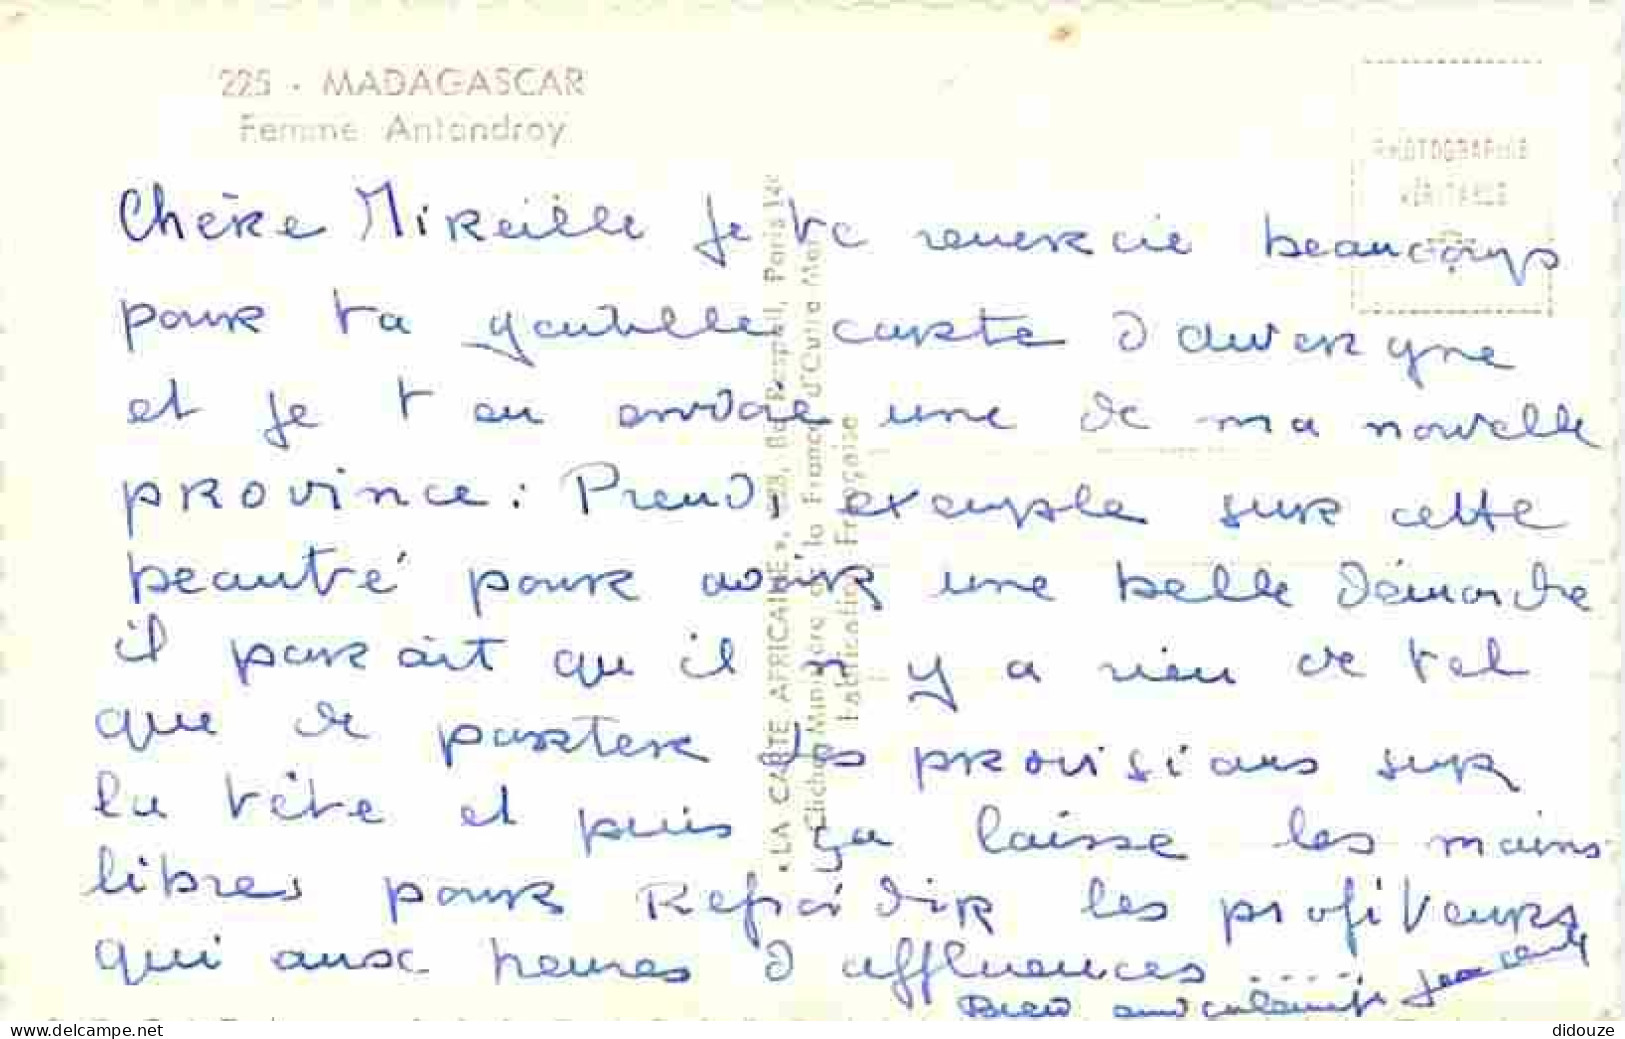 225 - MADAGASCAR
Femme Antandroy
PHOTOGRAPHIE
VÉRITABLE
Chère Mireille je te remercie beaucoup
pour ta gentille carte d'auvergne
et je t'en envoie une de ma nouvelle
province : Prends exemple sur cette
beauté pour avoir une belle démarche
il parait qu'il n'y a rien de tel
que de porter des provisions sur
la tête et puis ça laisse les mains
libres pour Refroidir les profiteurs
qui aux heures d'affluences .....
Bien amicalement
« LA CARTE AFRICAINE », Bd Raspail, Paris 14e
Cliché Ministère de la France d'Outre Mer
Fabrication Française
www.delcampe.net
didouze